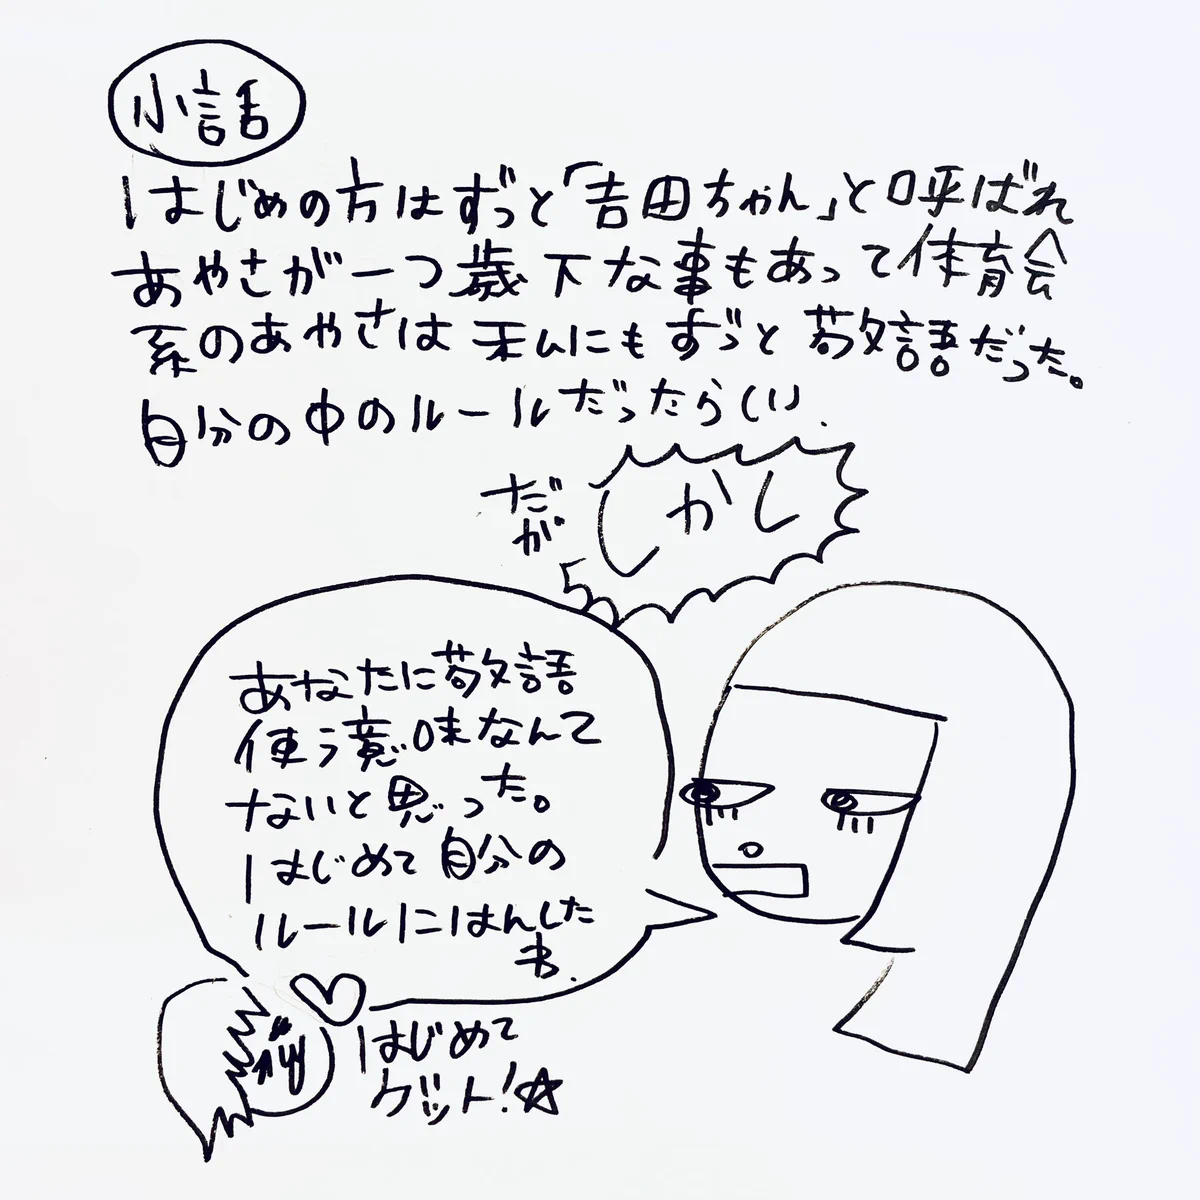 小話
はじめの方はずっと「吉田ちゃん」と呼ばれ
あやさが一つ歳下な事もあって体育会
系のあやさは私にもずっと敬語だった。
自分の中のルールだったらしい.
だが
しかし
あなたに敬語
使う意味なんて
ないと思った。
はじめて自分の
ルールにはんした
わ.
はじめて
ゲット!☆